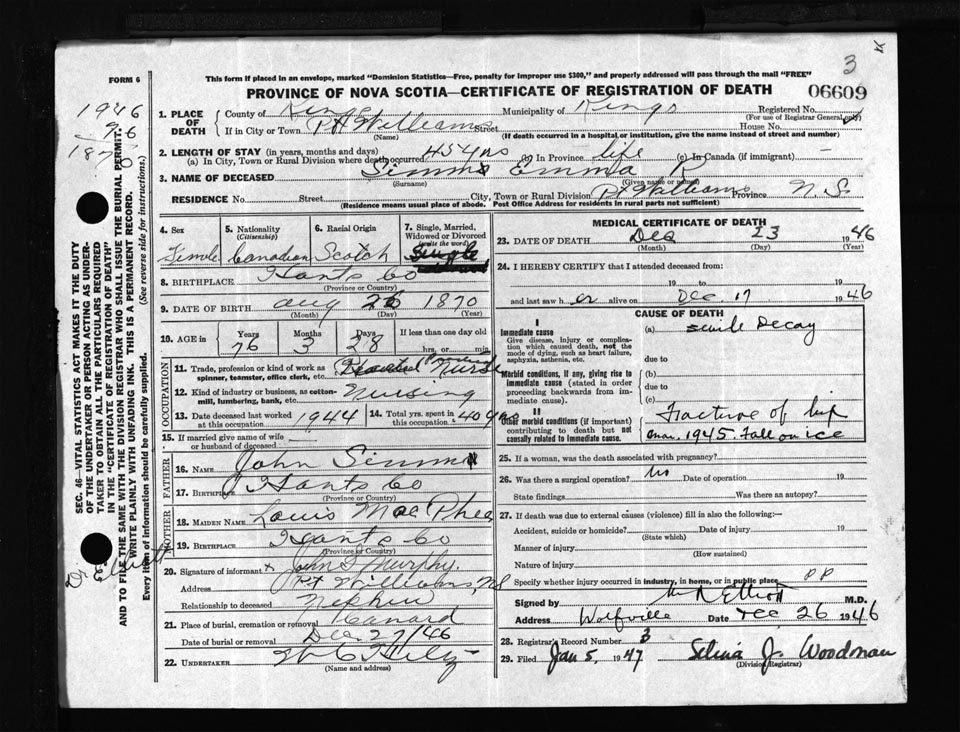 3
FORM 6
This form if placed in an envelope, marked "Dominion Statistics—Free, penalty for improper use $300," and properly addressed will pass through the mail "FREE"
PROVINCE OF NOVA SCOTIA—CERTIFICATE OF REGISTRATION OF DEATH 06609
1946
76
1870
SEC. 46—VITAL STATISTICS ACT MAKES IT THE DUTY
OF THE UNDERTAKER OR PERSON ACTING AS UNDER-
TAKER TO OBTAIN ALL THE PARTICULARS REQUIRED
IN THE "CERTIFICATE OF REGISTRATION OF DEATH"
AND TO FILE THE SAME WITH THE DIVISION REGISTRAR WHO SHALL ISSUE THE BURIAL PERMIT.
WRITE PLAINLY WITH UNFADING INK. THIS IS A PERMANENT RECORD.
Every item of information should be carefully supplied. (See reverse side for instructions.)
Dr Elliott
1. PLACE OF DEATH County of Kings Municipality of Kings Registered No.
(For use of Registrar General only)
If in City or Town Pt Williams Street House No.
(Name) (If death occurred in a hospital or institution, give the name instead of street and number)
2. LENGTH OF STAY (in years, months and days)
(a) In City, Town or Rural Division where death occurred 45 yrs (b) In Province life (c) In Canada (if immigrant) —
3. NAME OF DECEASED Simms Emma R
(Surname) (Given name or names)
RESIDENCE No. Street City, Town or Rural Division Pt Williams Province N. S.
(Residence means usual place of abode. Post Office Address for residents in rural parts not sufficient)
4. Sex 5. Nationality (Citizenship) 6. Racial Origin 7. Single, Married, Widowed or Divorced (write the word)
Female Canadian Scotch Single
8. BIRTHPLACE Hants Co
(Province or Country)
9. DATE OF BIRTH Aug 26 1870
(Month) (Day) (Year)
10. AGE in Years Months Days If less than one day old
76 3 28 hrs. or min.
OCCUPATION
11. Trade, profession or kind of work as spinner, teamster, office clerk, etc. Practical Nurse
12. Kind of industry or business, as cotton-mill, lumbering, bank, etc. Nursing
13. Date deceased last worked at this occupation 1944 14. Total yrs. spent in this occupation 40 yrs
15. If married give name of wife or husband of deceased
FATHER
16. NAME John Simms
17. BIRTHPLACE Hants Co
(Province or Country)
MOTHER
18. MAIDEN NAME Louis Mac Phee
19. BIRTHPLACE Hants Co
(Province or Country)
20. Signature of informant x John S Murphy.
Address Pt Williams, NS
Relationship to deceased Nephew
21. Place of burial, cremation or removal Canard
Date of burial or removal Dec 27/46
22. UNDERTAKER
(Name and address)
MEDICAL CERTIFICATE OF DEATH
23. DATE OF DEATH Dec 23 1946
(Month) (Day) (Year)
24. I HEREBY CERTIFY that I attended deceased from:
19 to 19
and last saw her alive on Dec 17 1946
CAUSE OF DEATH
I
Immediate cause (a) senile Decay
Give disease, injury or complication which caused death, not the mode of dying, such as heart failure, asphyxia, asthenia, etc.
due to
Morbid conditions, if any, giving rise to immediate cause (stated in order proceeding backwards from immediate cause). (b)
due to
(c)
II
Other morbid conditions (if important) contributing to death but not causally related to immediate cause. Fracture of hip
Mar. 1945. Fall on ice
25. If a woman, was the death associated with pregnancy?
26. Was there a surgical operation? no Date of operation 19
State findings Was there an autopsy?
27. If death was due to external causes (violence) fill in also the following:—
Accident, suicide or homicide? Date of injury 19
(State which)
Manner of injury
(How sustained)
Nature of injury
Specify whether injury occurred in industry, in home, or in public place P P
Signed by Elliott M.D.
Address Wolfville Date Dec 26 1946
28. Registrar's Record Number 3
29. Filed Jan 5, 1947 Selina J. Woodman
(Division Registrar)